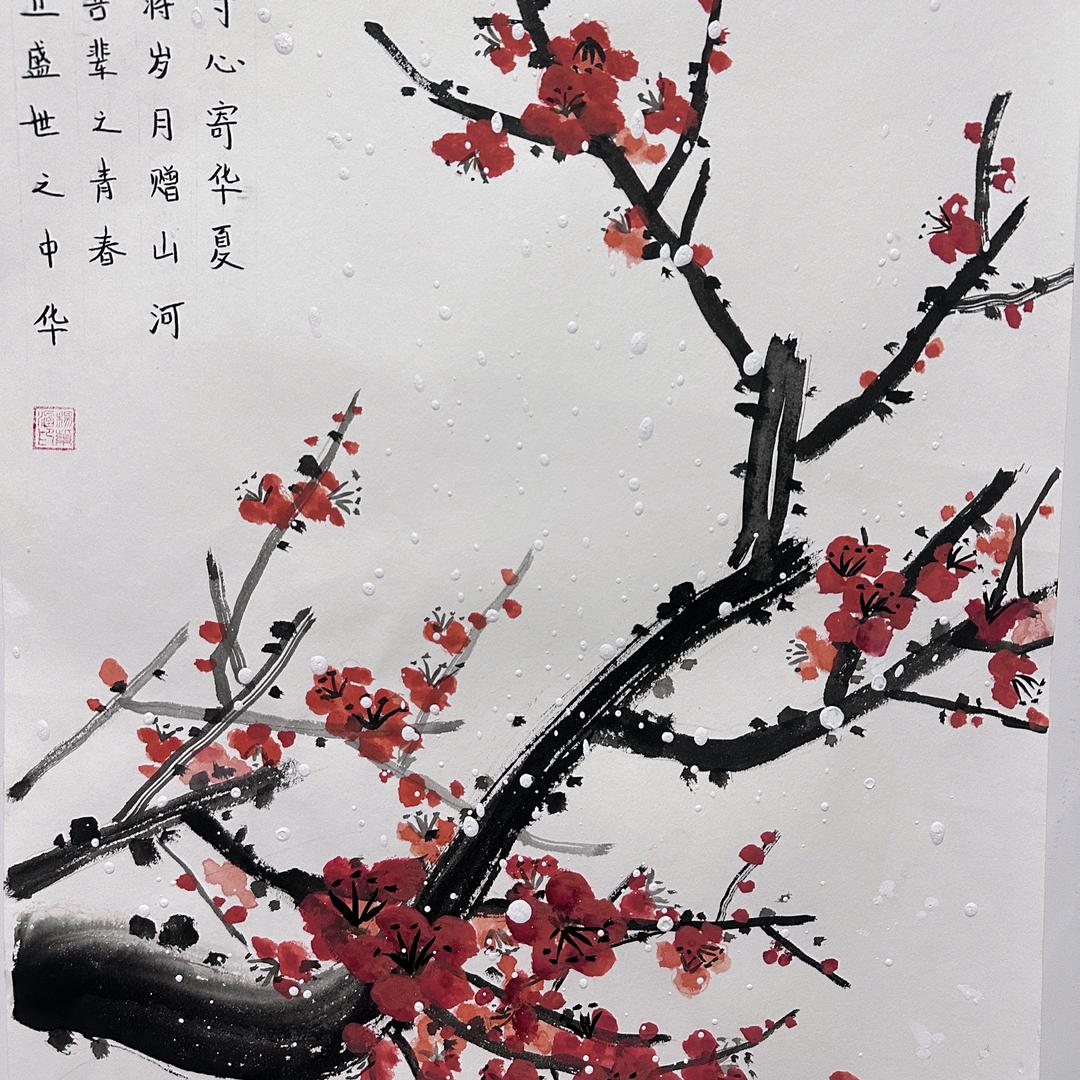 寸心寄华夏
将岁月赠山河
吾辈之青春
盛世之中华